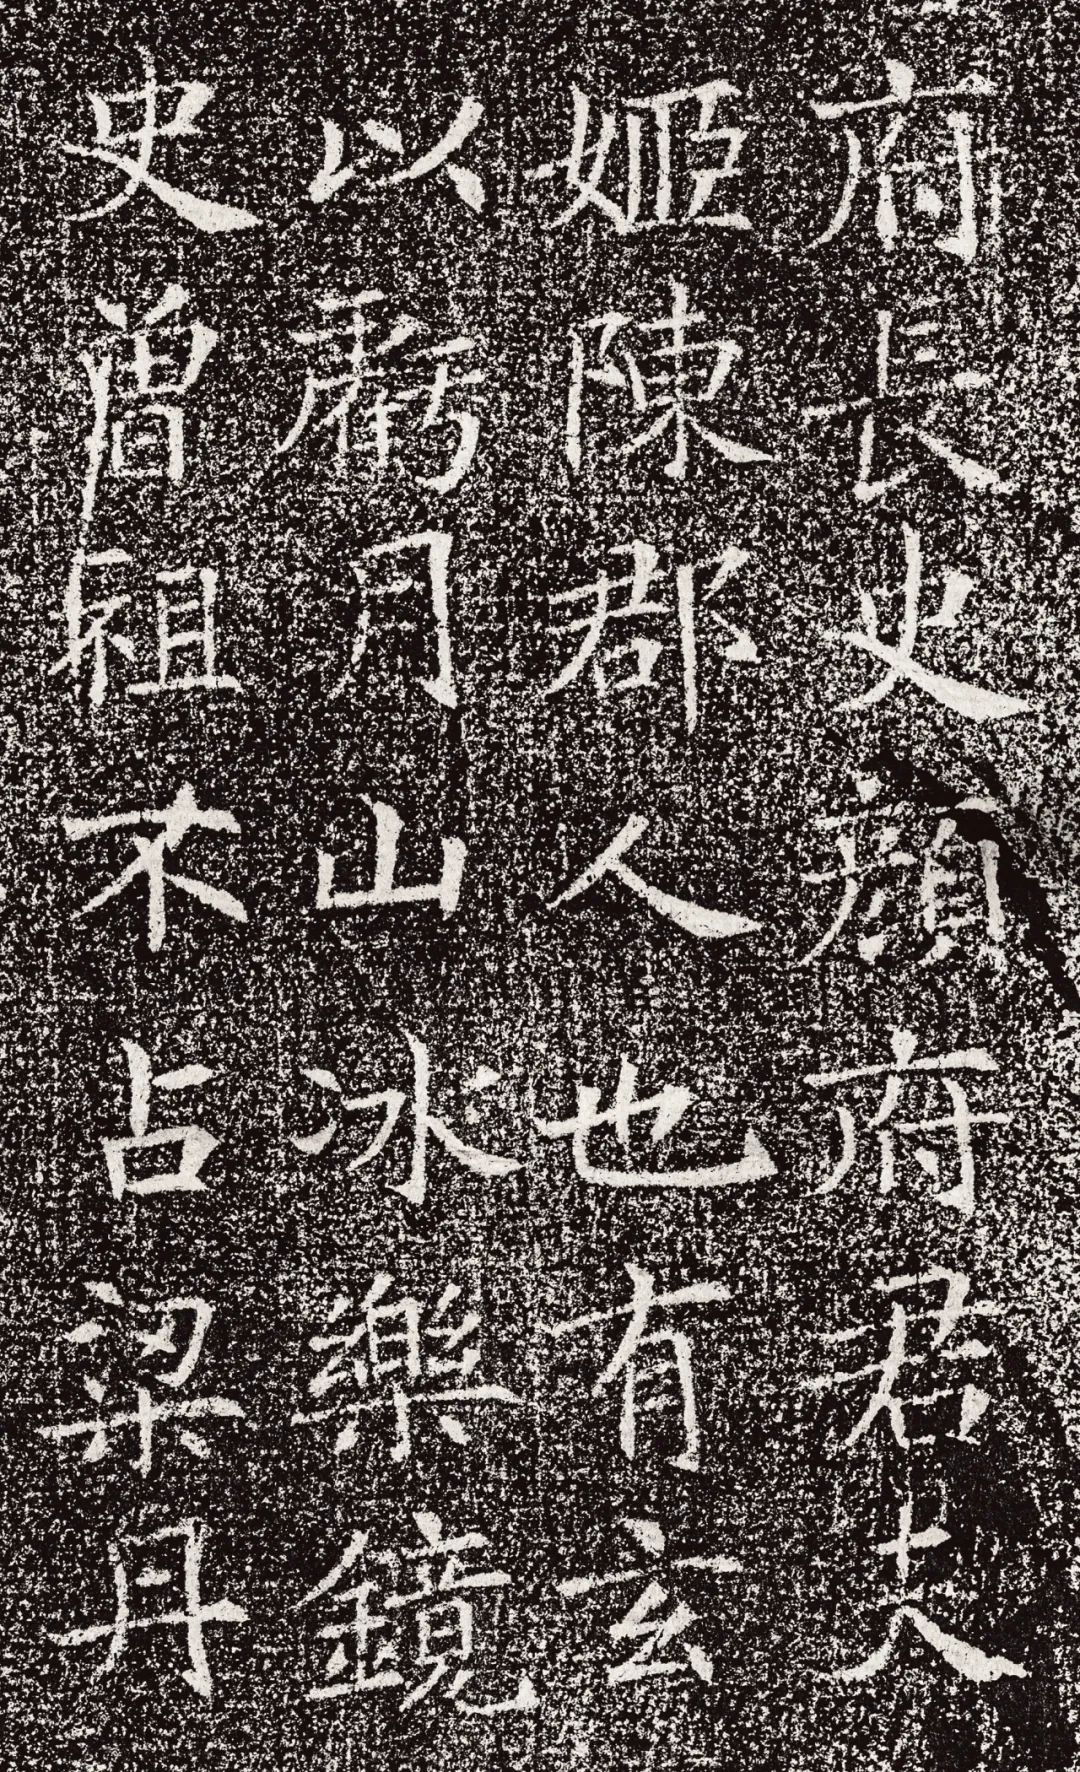 府長史顏府君夫
姬陳郡人也有玄
以虧月山冰樂鏡
史曾祖不占梁丹